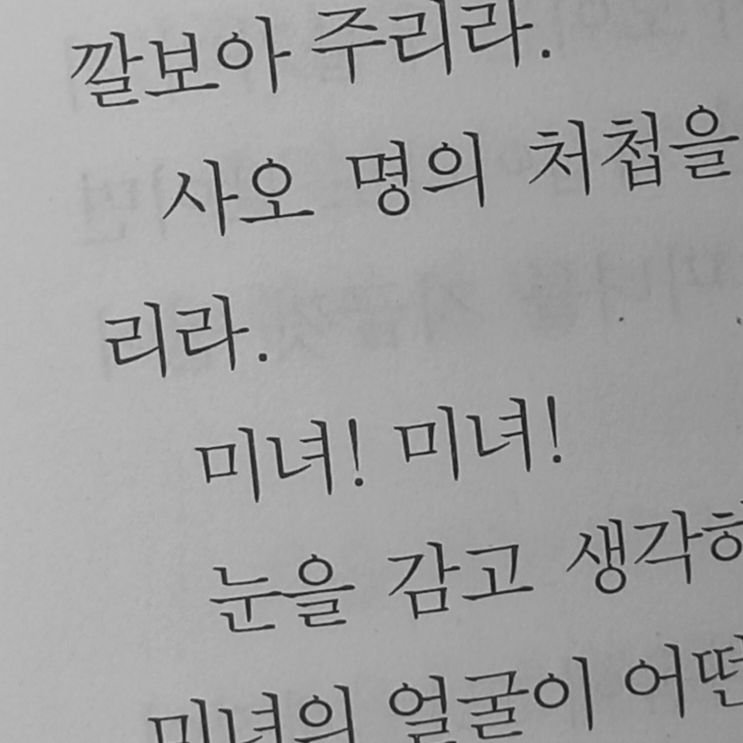 깔보아 주리라.
사오 명의 처첩을
리라.
미녀! 미녀!
눈을 감고
미녀의 얼굴이